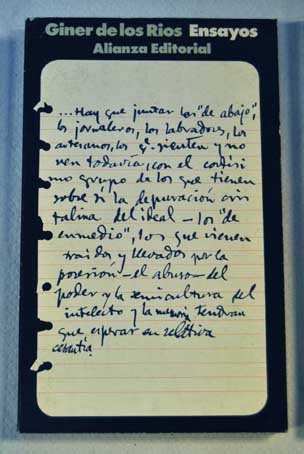 Giner de los Rios Ensayos
Alianza Editorial
...Hay que juntar los "de abajo",
los jornaleros, los labradores, los
artesanos, los q. sienten y no
ven todavía, con el cortísi
mo grupo de los que tienen
sobre sí la depuración
del ideal – los "de
enmedio", los que vienen
traidos y llevados por la
posesión – el abuso – del
poder y la semicultura del
intelecto y la tendrán
que esperar en relativa
cesantía.